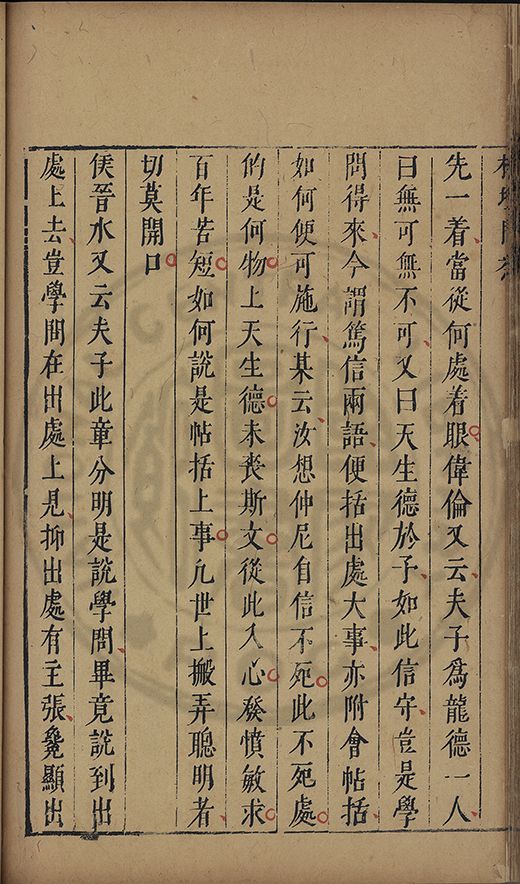 榕壇問業
先一着當從何處着眼偉倫又云夫子為龍德一人
曰無可無不可又曰天生德於予如此信守豈是學
問得來今謂篤信兩語便括出處大事亦附會帖括
如何便可施行某云汝想仲尼自信不死此不死處
的是何物上天生德未喪斯文從此入心發憤敏求
百年苦短如何說是帖括上事凡世上搬弄聰明者
切莫開口
侯晉水又云夫子此章分明是說學問畢竟說到出
處上去豈學問在出處上見抑出處有主張纔顯出